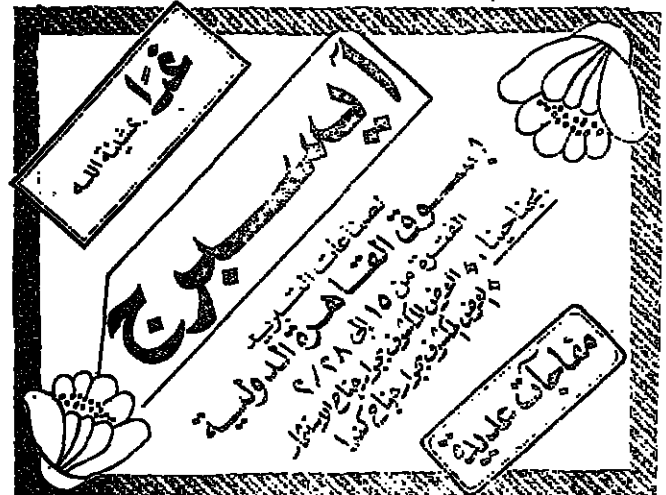 غدًا
بمشيئة الله
ايسبرج
لصناعات التبريد
بسوق القاهرة الدولية
الفترة من ١٥ إلى ٢٨/٢
بجناحينا: * العرض المكشوف بجوار جناح الاستثمار
* العرض المكشوف بجوار جناح كندا
مفاجآت عديدة